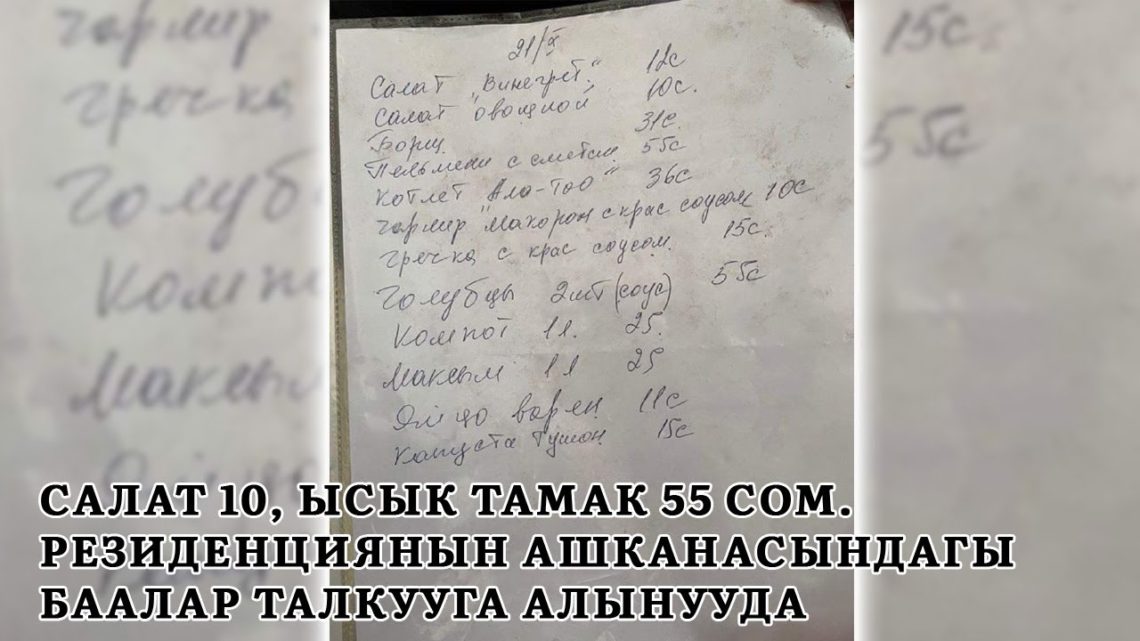 21/X
Салат „Винегрет" 12с
Салат "овощной" 10с.
Борщ 31с.
Пельмени с сметан. 55с
Котлет "Ала-Тоо" 36с
гарнир "Макорон с крас соусом 10с
гречка с крас соусом. 15с.
Голубцы 2шт (соус) 55с
Компот 1л. 25.
Максым 1л 25
Яйцо варен 11с
Капуста тушон. 15с
САЛАТ 10, ЫСЫК ТАМАК 55 СОМ.
РЕЗИДЕНЦИЯНЫН АШКАНАСЫНДАГЫ
БААЛАР ТАЛКУУГА АЛЫНУУДА